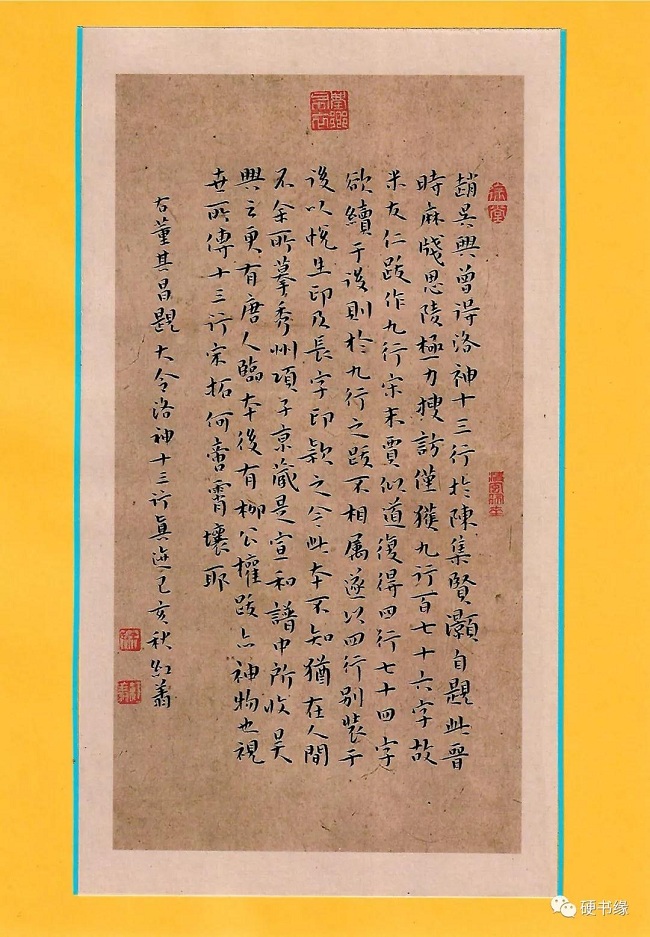 趙吳興曾得洛神十三行於陳集賢灝自題此晉
時麻牋思陵極力搜訪僅獲九行百七十六字故
米友仁跋作九行宋末賈似道復得四行七十四字
欲續于後則於九行之跋不相属遂以四行別裝于
後以悅生印及長字印款之今此本不知猶在人間
不余所摹秀州項子京藏是宣和譜中所收吳
興云更有唐人臨本後有柳公權跋亦神物也視
世所傳十三行宋拓何啻霄壤耶
右董其昌題大令洛神十三行眞迹己亥秋紅
硬书缘